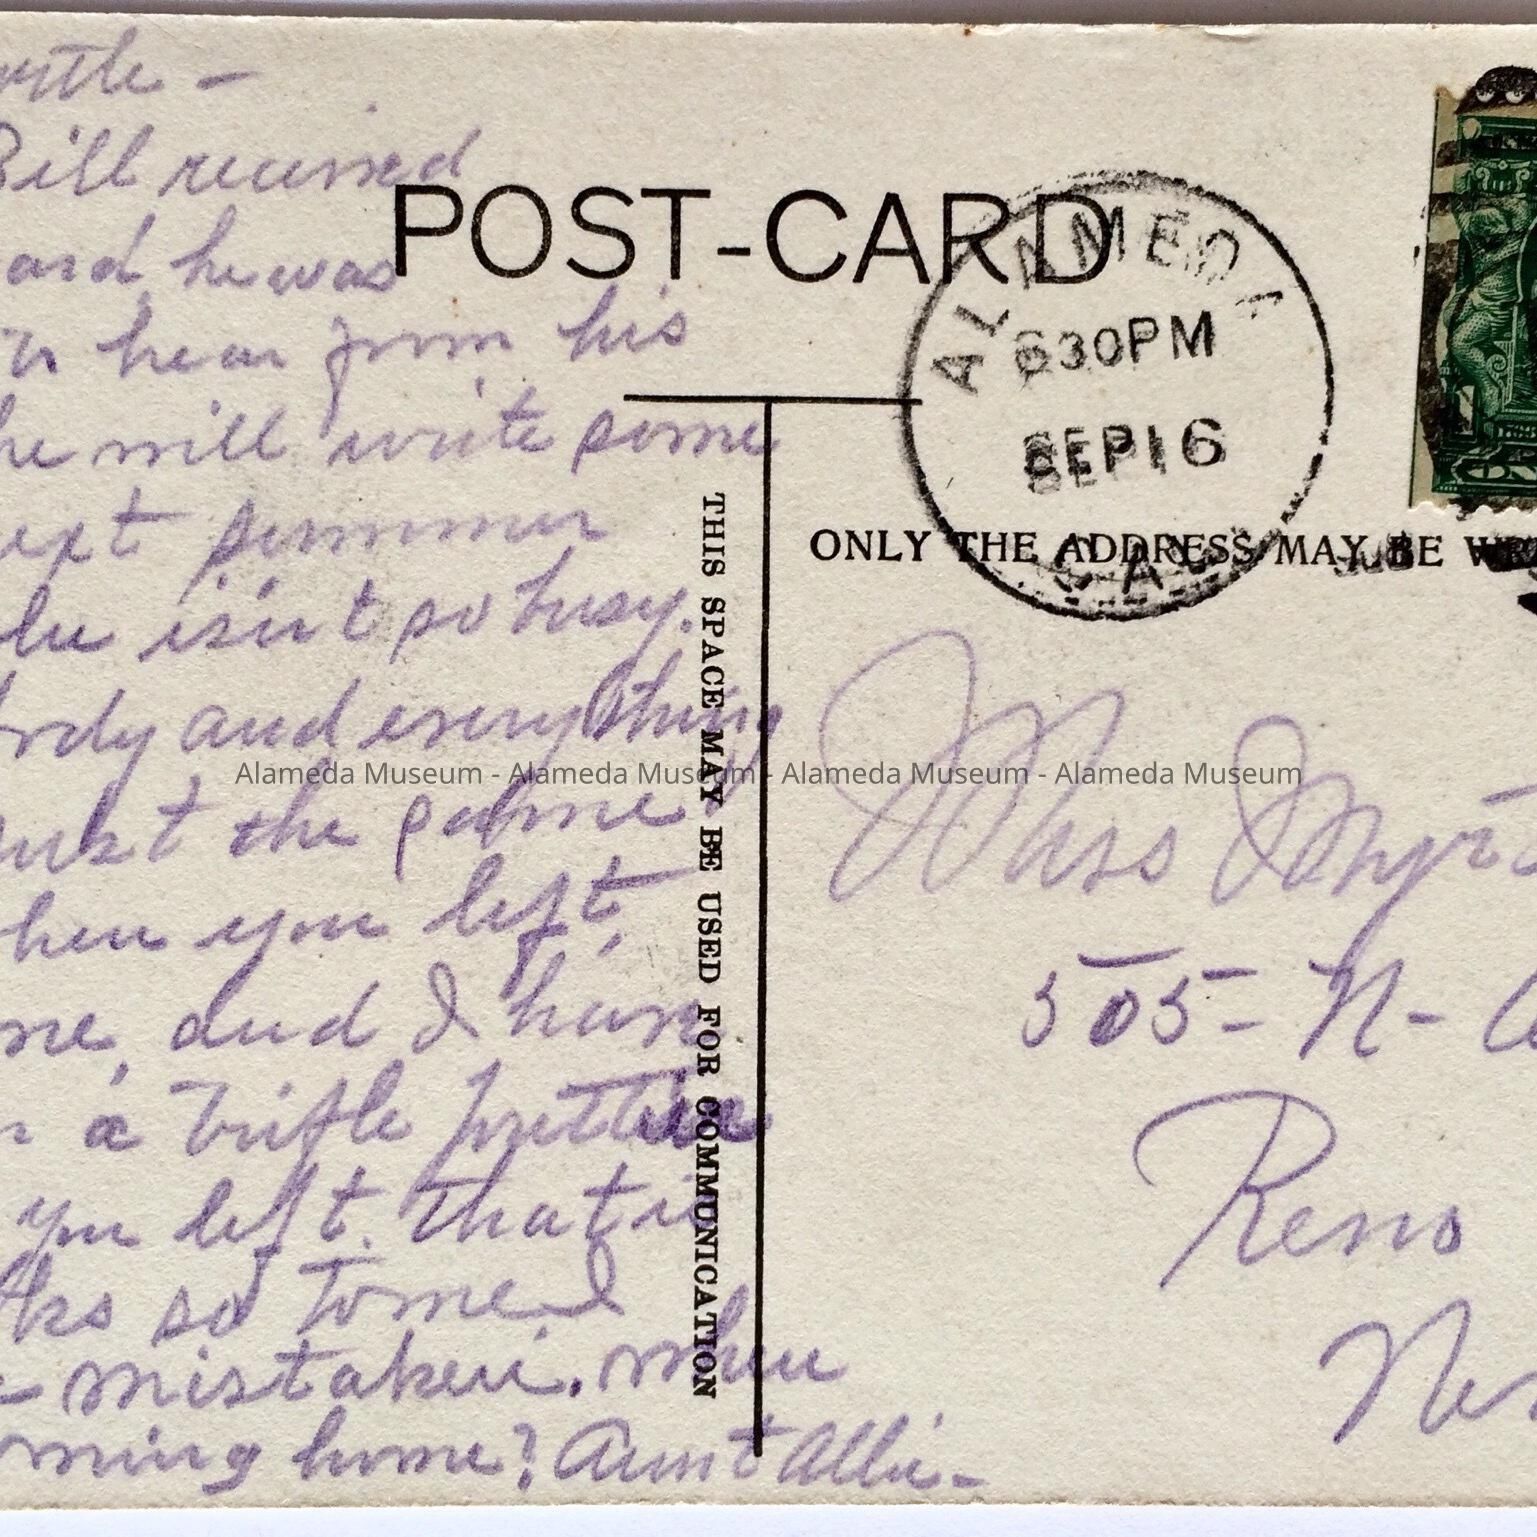 rtle -
Bill received
ard, he was
to hear from his
he will write some
ext summer
he isn't so busy.
ody and everything
just the same,
when you left,
me, and I have
a trifle prettier
you left. that is
lks so to me I
mistaken. when
oming home? Aunt Allie -
POST-CARD
THIS SPACE MAY BE USED FOR COMMUNICATION
ALAMEDA
630PM
SEP 16
CAL
ONLY THE ADDRESS MAY BE WR
Miss Myrt
505 - N -
Reno
Nev
Alameda Museum - Alameda Museum - Alameda Museum - Alameda Museum